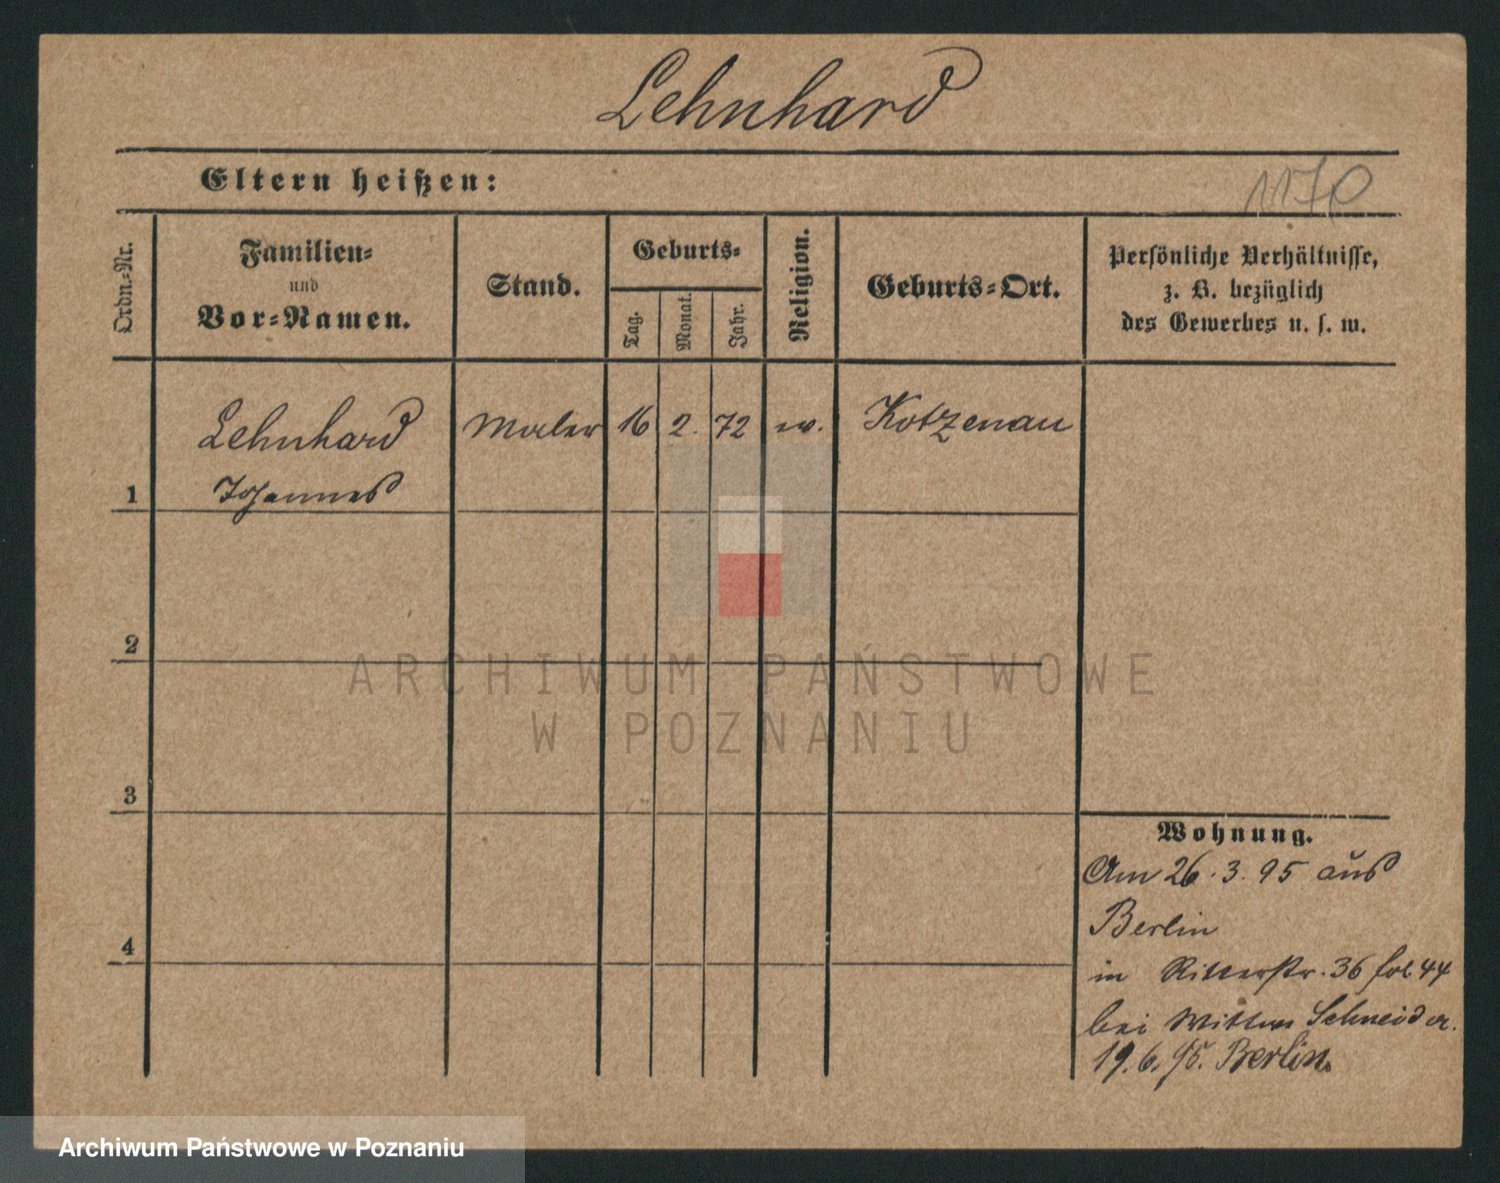 Lehnhard
Eltern heißen:
1170
Ordn.-Nr.
Familien-
und
Vor-Namen.
Stand.
Geburts-
Tag.
Monat.
Jahr.
Religion.
Geburts-Ort.
Persönliche Verhältnisse,
z. B. bezüglich
des Gewerbes u. s. w.
Lehnhard Maler 16 2. 72 ev. Kotzenau
1 Johannes
2
ARCHIWUM PAŃSTWOWE
W POZNANIU
3
Wohnung.
Am 26.3.95 aus
Berlin
4
in Ritterstr. 36 fol. 44
bei Schneider.
19.6.95. Berlin.
Archiwum Państwowe w Poznaniu